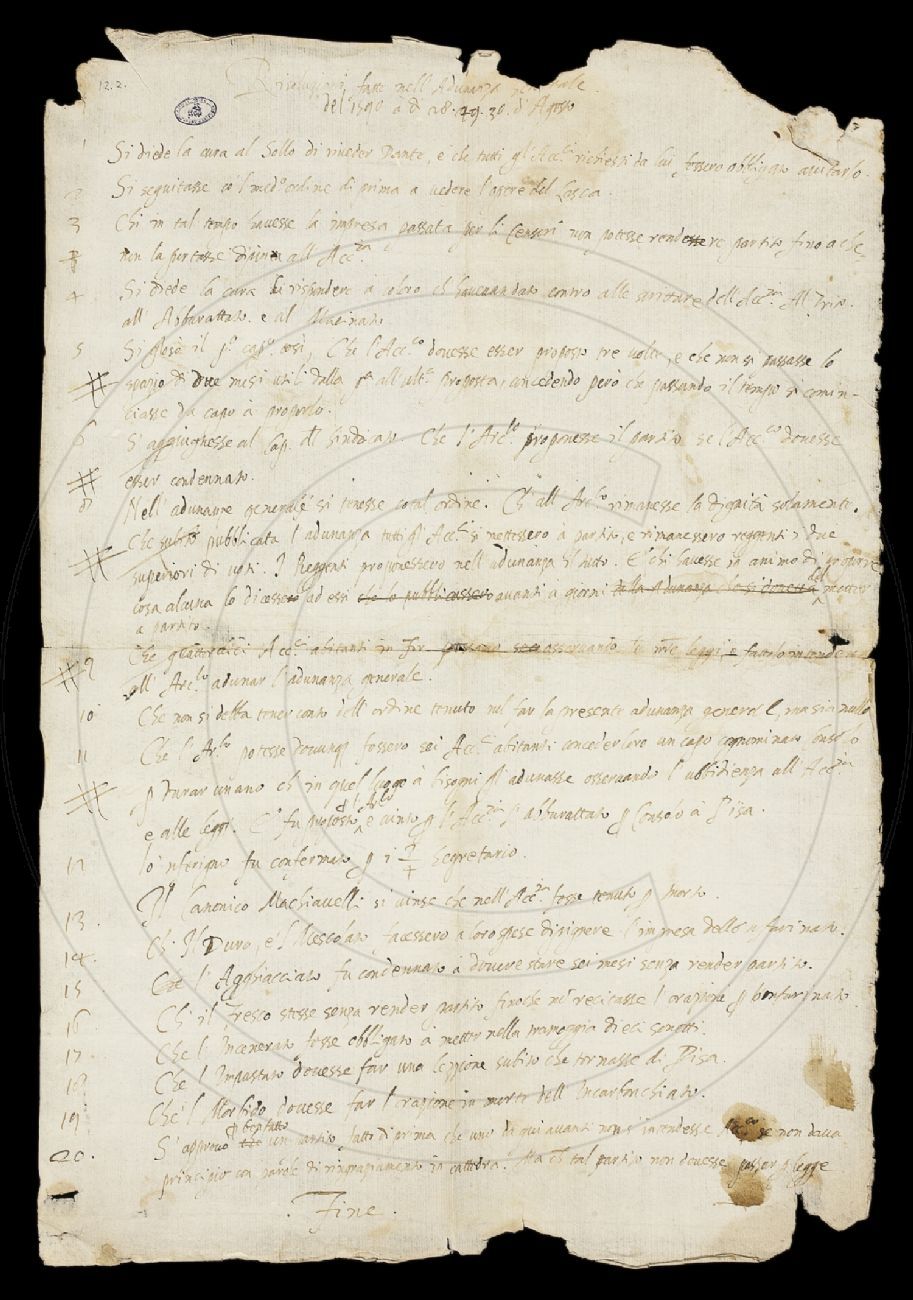 12.2.
Risoluzioni fatte nell'Adunanza generale
del 1590 a dì 28. 29. 30. d'Agosto
1 Si diede la cura al Sollo di riveder Dante, e che tutti gl'Acc.ci richiesti da lui fossero obbligati aiutarlo.
2 Si seguitasse co'l med.o ordine di prima a vedere l'opere del Lasca.
3 Chi in tal tempo havesse la impresa passata per li Censori non potesse rendere partito fino a che
non la portasse dipinta all'Acc.ia
4 Si diede la cura di rispondere a coloro ch'havevandato contro alle scritture dell'Acc.ia Al Trito.
all'Abburattato. e al Macinato
5 Si glosò il p.o cap.o così, Che l'Acc.co dovesse esser proposto tre volte, e che non si passasse lo
spazio di due mesi utili dalla p.a all'ult.a proposta, concedendo però che passando il tempo si comin-
ciasse da capo à proporlo.
6 S'aggiughesse al Cap. del Sindicato. Che l'Arc.lo proponesse il partito se l'Acc.co dovesse
esser condennato.
8 Nell'adunanze generali si tenesse cotal ordine. Ch'all'Arc.lo rimanesse la dignità solamente.
Che subito pubblicata l'adunanza tutti gl'Acc.ci si mettessero à partito, e rimanessero reggenti i due
superiori di voti. I Reggenti proponessero nell'adunanza il tutto. E chi havesse in animo di proporre
cosa alcuna lo dicesse ad essi che lo pubblicassero avanti à giorni della Adunanza che si doveva del metter
a partito.
9 Che quattordici Acc.ci abitanti in Fir. possano osservanto le leggi, e
all'Arc.lo adunar l'adunanza generale.
10 Che non si debba tener conto dell'ordine tenuto nel far la presente adunanza generale, ma sia nullo
11 Che l'Arc.lo potesse dovunq. fossero sei Acc.ci abitanti concederloro un capo cognominato Consolo
p durar un anno ch'in quel luogo à bisogni gl'adunasse osservando l'ubbidienza all'Acc.ia
e alle leggi. E fu proposto e vinto p l'Acc.ia l'abburattato p Consolo à Pisa.
12 Lo'nferigno fu confermato p Segretario.
Il Canonico Machiavelli si vinse che nell'Acc.ia fosse tenuto p morto.
13. Ch'il Duro, e'l Mescolato facessero a loro spese dipignere l'impresa dello infarinato.
14. Che l'Agghiacciato fu condennato à dovere stare sei mesi senza render partito.
15 Ch'il Fresco stesse senza render partito finoche non recitasse l'orazione p
16 Che l'Incenerato fosse obbligato à metter nella tramoggia dieci sonetti.
17. Che l'Impastato dovesse far una lezzione subito che tornasse di Pisa.
18 Che'l Morbido dovesse far l'orazione in morte dell'Incarbonchiato.
19 S'approvò un partito fatto di prima che uno da qui avanti non s'intendesse Acc.co se non dava
20. principio con parole di ringraziamento in cattedra. Ma ch'tal partito non dovesse passar p legge
Fine.